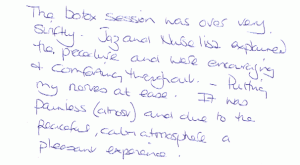 The botox session was over very
swiftly. Jaz and Nurse Lisa explained
the procedure and were encouraging
& comforting throughout - Putting
my nerves at ease. It was
painless (almost) and due to the
peaceful, calm atmosphere a
pleasant experience.